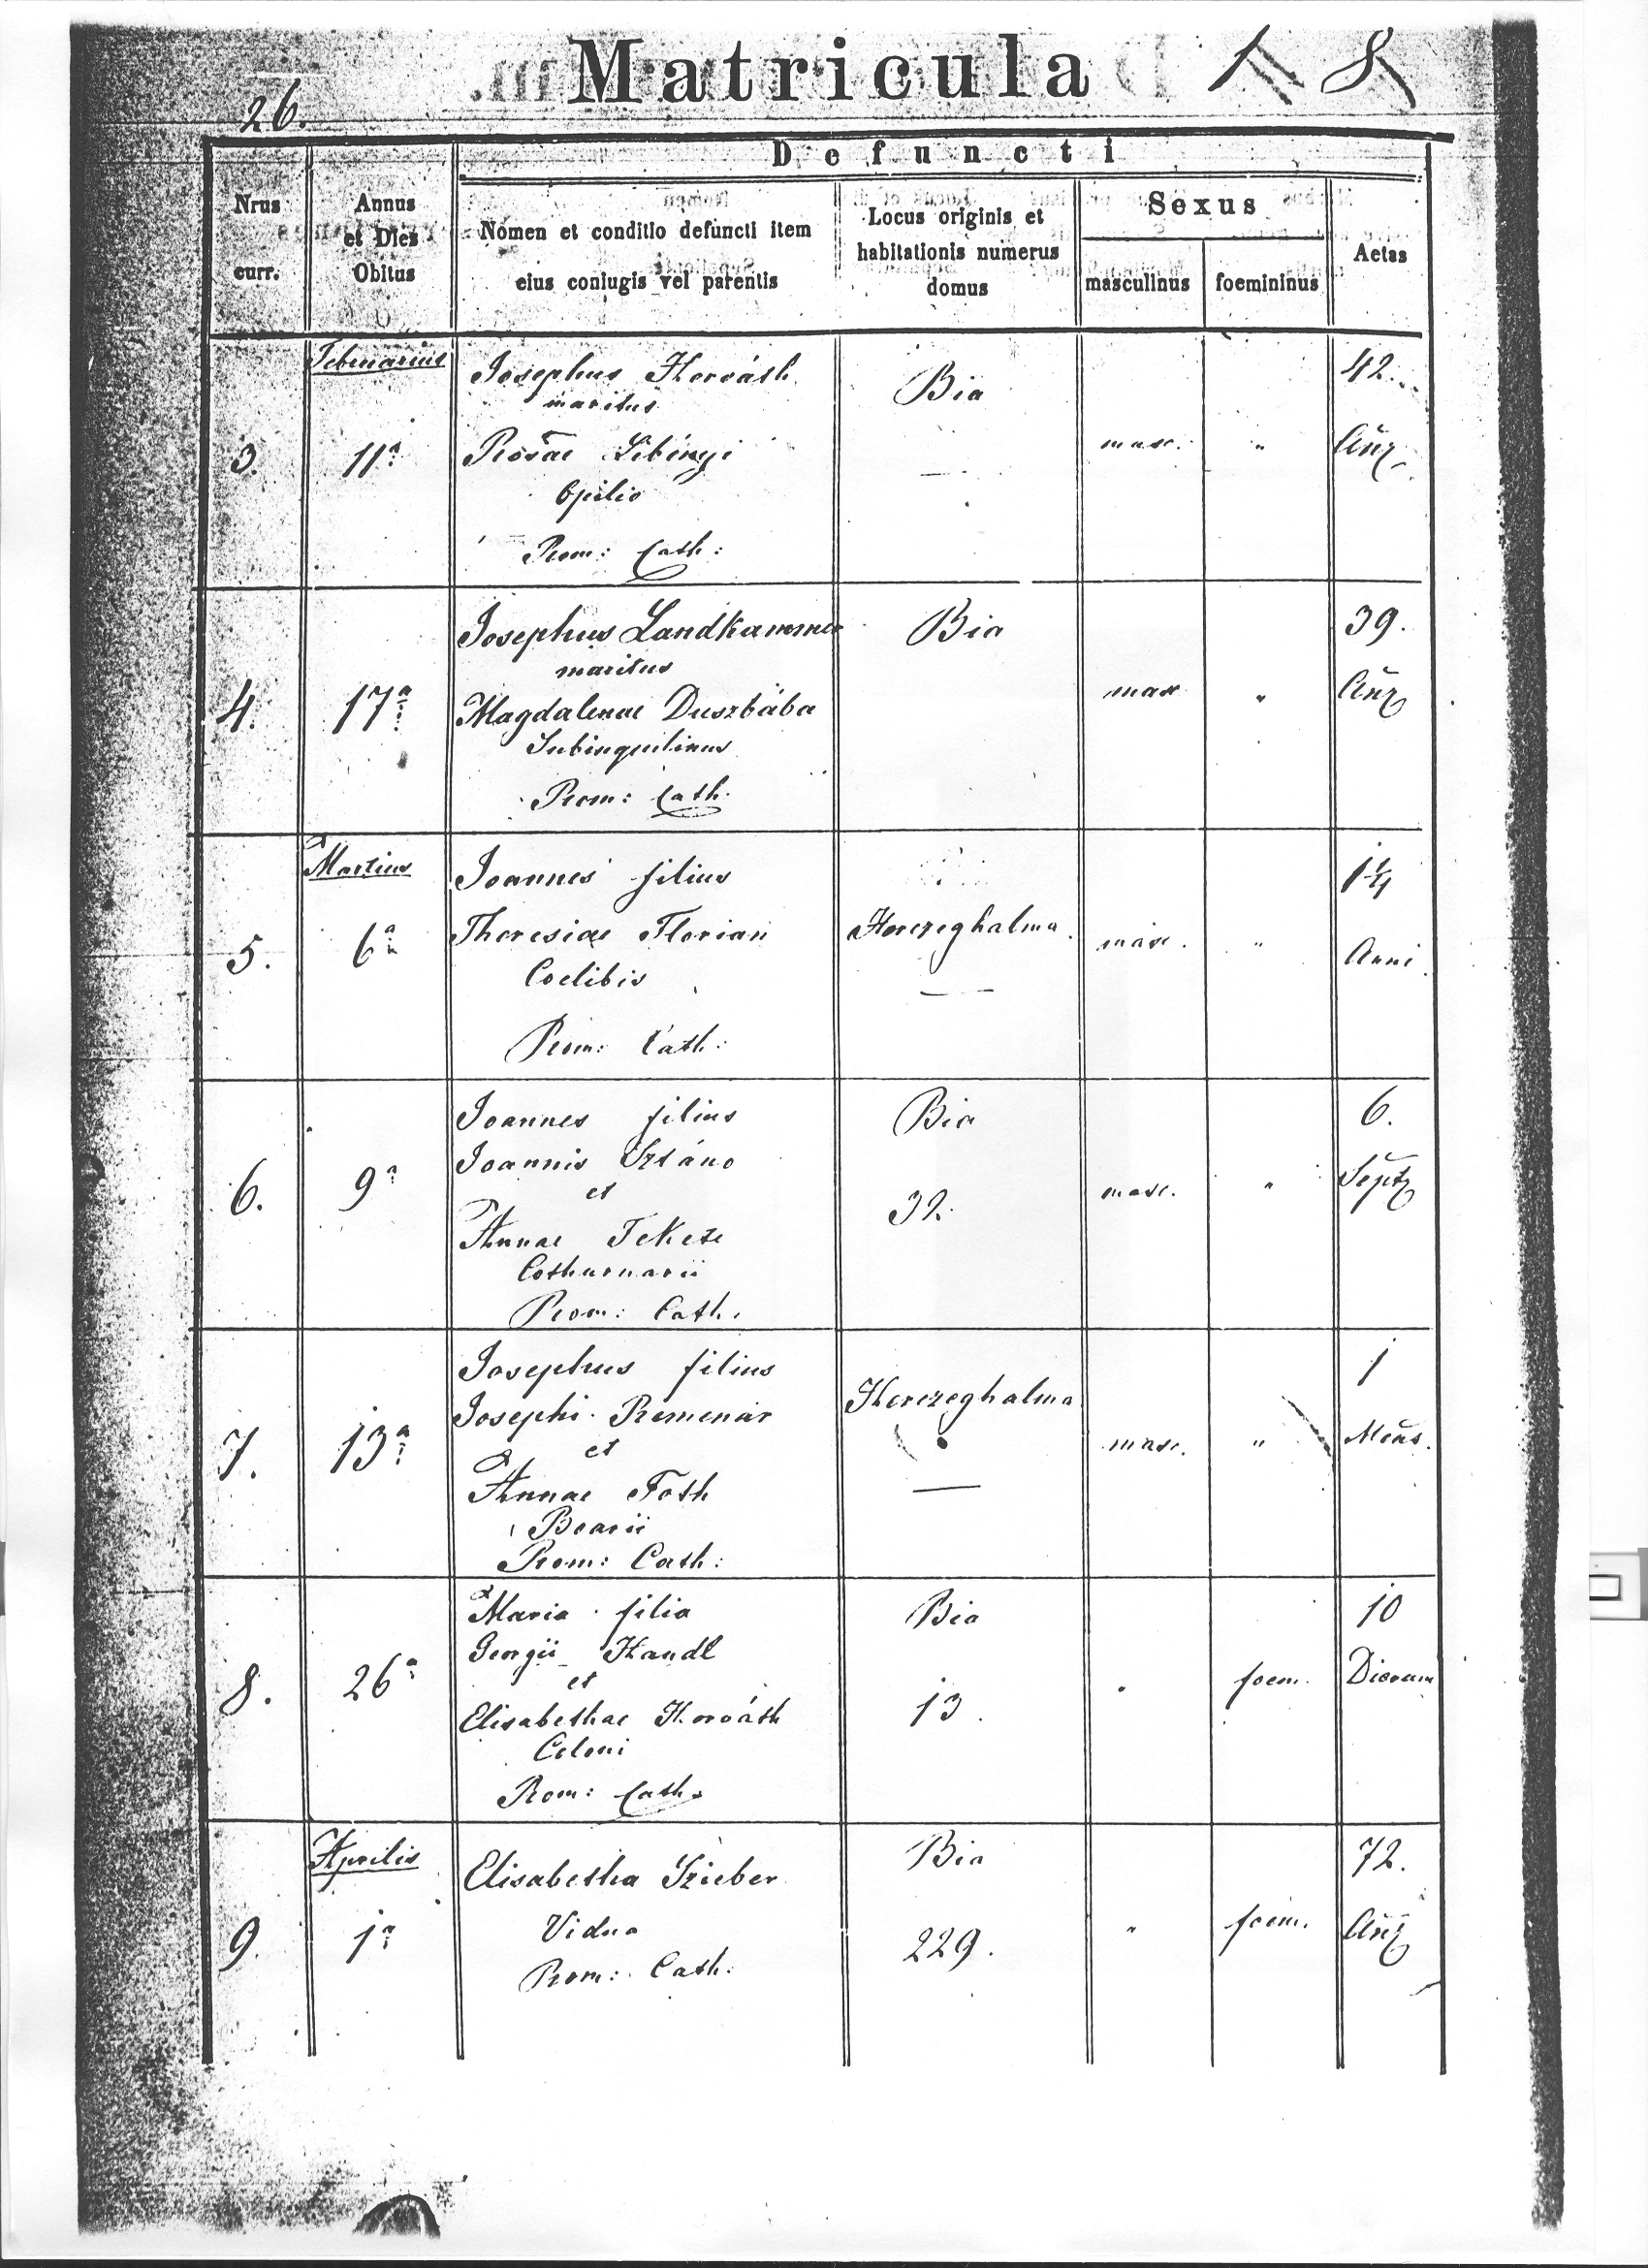 Matricula 1 8
26.
Defuncti
Nrus
curr.
Annus
et Dies
Obitus
Nomen et conditio defuncti item
eius coniugis vel parentis
Locus originis et
habitationis numerus
domus
Sexus
masculinus
foemininus
Aetas
Februarius
3.
11a
Josephus Horváth
maritus
Rosae Libinyi
Opilio
Rom: Cath:
Bia
—
masc.
"
42.
Añz
4.
17a
Josephus Landkammer
maritus
Magdalenae Duszbába
Subinquilinus
Rom: Cath.
Bia
masc
"
39.
Añz
Martius
5.
6a
Joannes filius
Theresiae Florian
Coelibis
Rom: Cath:
Herczeghalma.
—
masc.
"
1¼
Anni
6.
9a
Joannes filius
Joannis Sztáno
et
Annae Fekete
Cothurnarii
Rom: Cath.
Bia
32.
masc.
"
6.
Septz
7.
13a
Josephus filius
Josephi Remenár
et
Annae Toth
Boarii
Rom: Cath:
Herczeghalma
—
masc.
"
1
Mens.
8.
26a
Maria filia
Georgii Handl
et
Elisabethae Horváth
Coloni
Rom: Cath.
Bia
13.
"
foem.
10
Dierum
Aprilis
9.
1a
Elisabetha Szieber
Vidua
Rom: Cath:
Bia
229.
"
foem.
72.
Añz